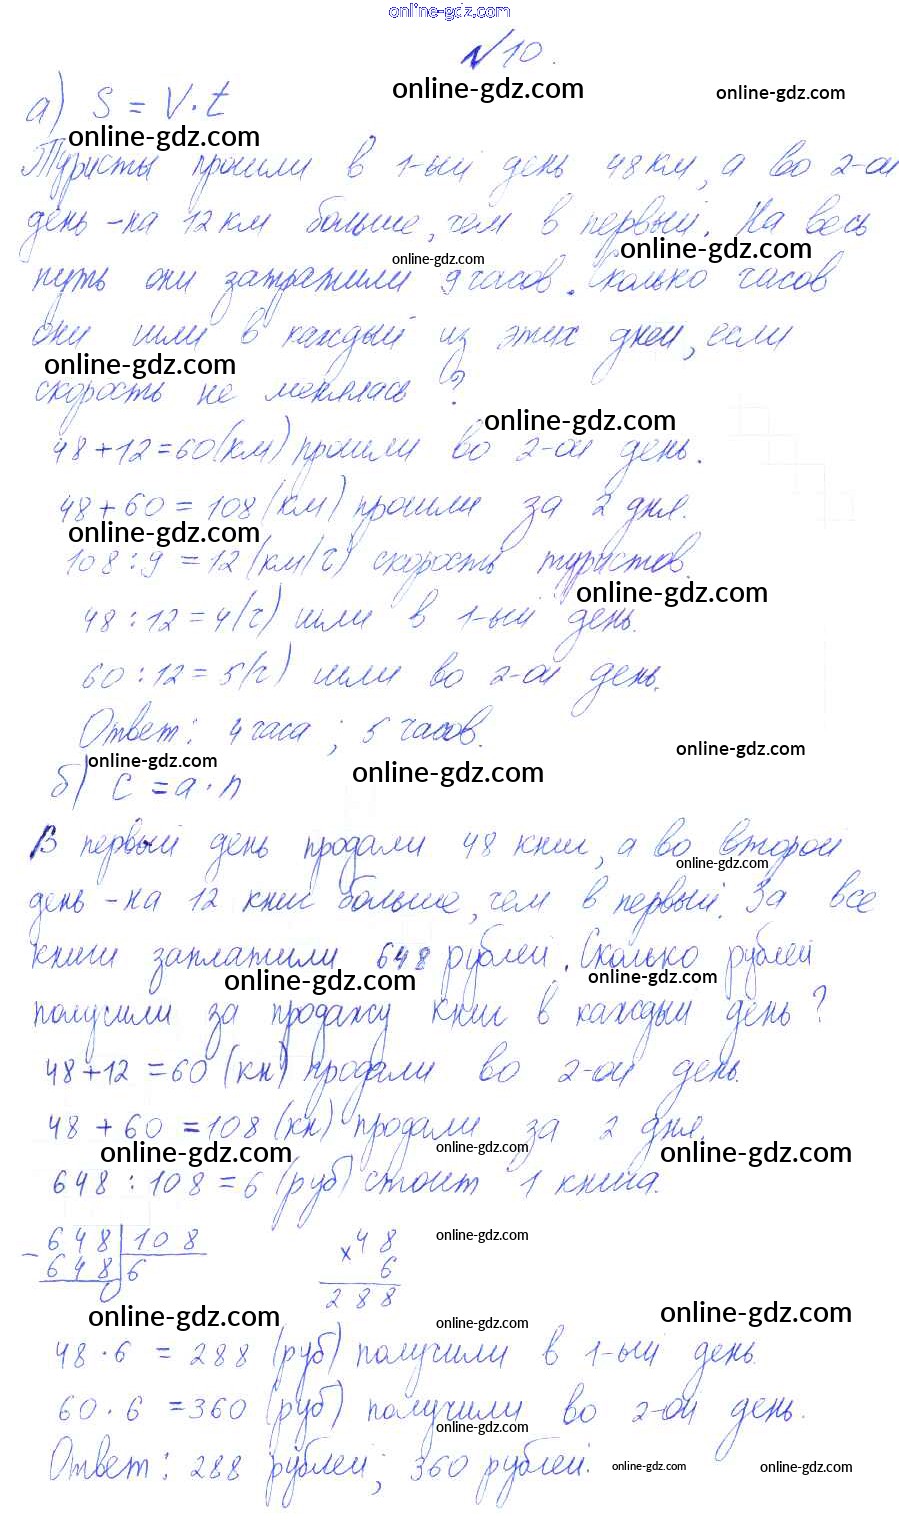 online-gdz.com
№10.
online-gdz.com
online-gdz.com
а) S = V·t
online-gdz.com
Туристы прошли в 1-ый день 48 км, а во 2-ой
день - на 12 км больше, чем в первый. На весь
online-gdz.com
online-gdz.com
путь они затратили 9 часов. Сколько часов
они шли в каждый из этих дней, если
online-gdz.com
скорость не менялась?
online-gdz.com
48+12=60(км) прошли во 2-ой день.
48+60=108(км) прошли за 2 дня.
online-gdz.com
108:9=12(км/ч) скорость туристов.
online-gdz.com
48:12=4(ч) шли в 1-ый день.
60:12=5(ч) шли во 2-ой день.
Ответ: 4 часа; 5 часов.
online-gdz.com
online-gdz.com
online-gdz.com
б) C=a·n
В первый день продали 48 книг, а во второй
online-gdz.com
день - на 12 книг больше, чем в первый. За все
книги заплатили 648 рублей. Сколько рублей
online-gdz.com
online-gdz.com
получили за продажу книг в каждый день?
48+12=60(кн) продали во 2-ой день.
48+60=108(кн) продали за 2 дня.
online-gdz.com
online-gdz.com
online-gdz.com
648:108=6(руб) стоит 1 книга.
- 648 | 108
648 | 6
0
× 48
6
288
online-gdz.com
online-gdz.com
online-gdz.com
online-gdz.com
48·6=288(руб) получили в 1-ый день.
60·6=360(руб) получили во 2-ой день.
online-gdz.com
Ответ: 288 рублей; 360 рублей.
online-gdz.com
online-gdz.com